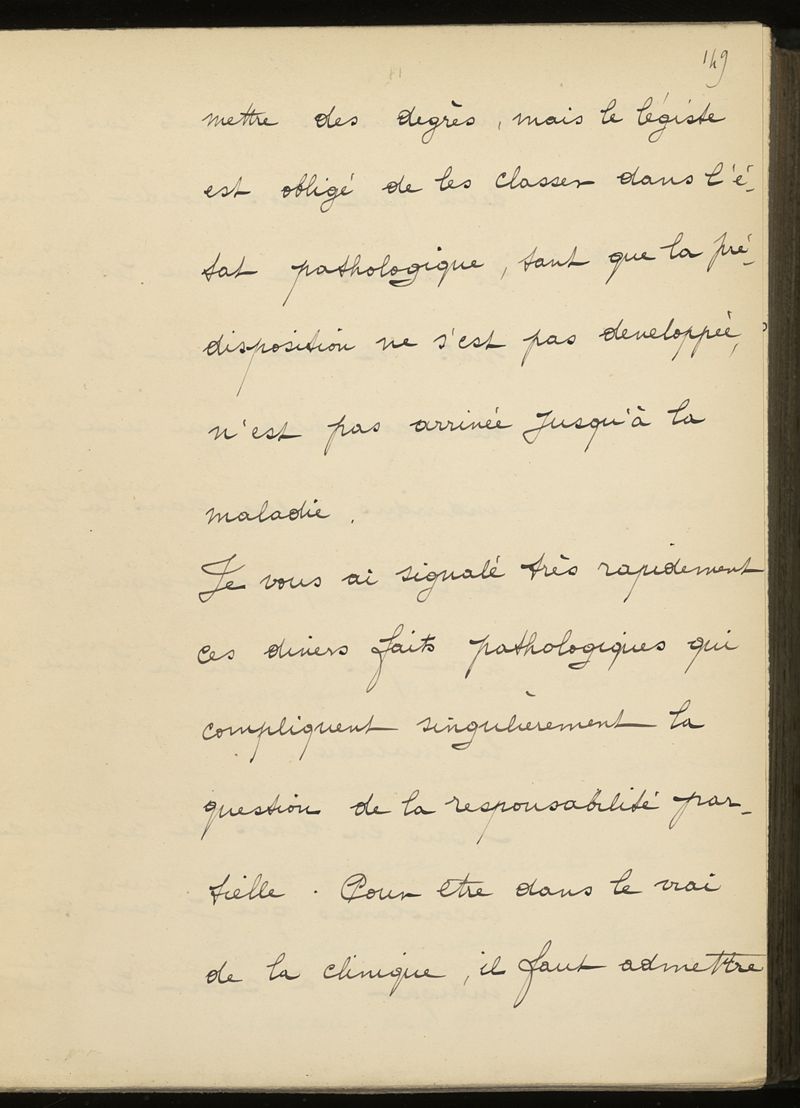 149
mettre des degrès, mais le légiste
est obligé de les classer dans l'é-
tat pathologique, tant que la pré-
disposition ne s'est pas developpée,
n'est pas arrivée jusqu'à la
maladie.
Je vous ai signalé très rapidement
ces divers faits pathologiques qui
compliquent singulièrement la
question de la responsabilité par-
tielle. Pour être dans le vrai
de la clinique, il faut admettre